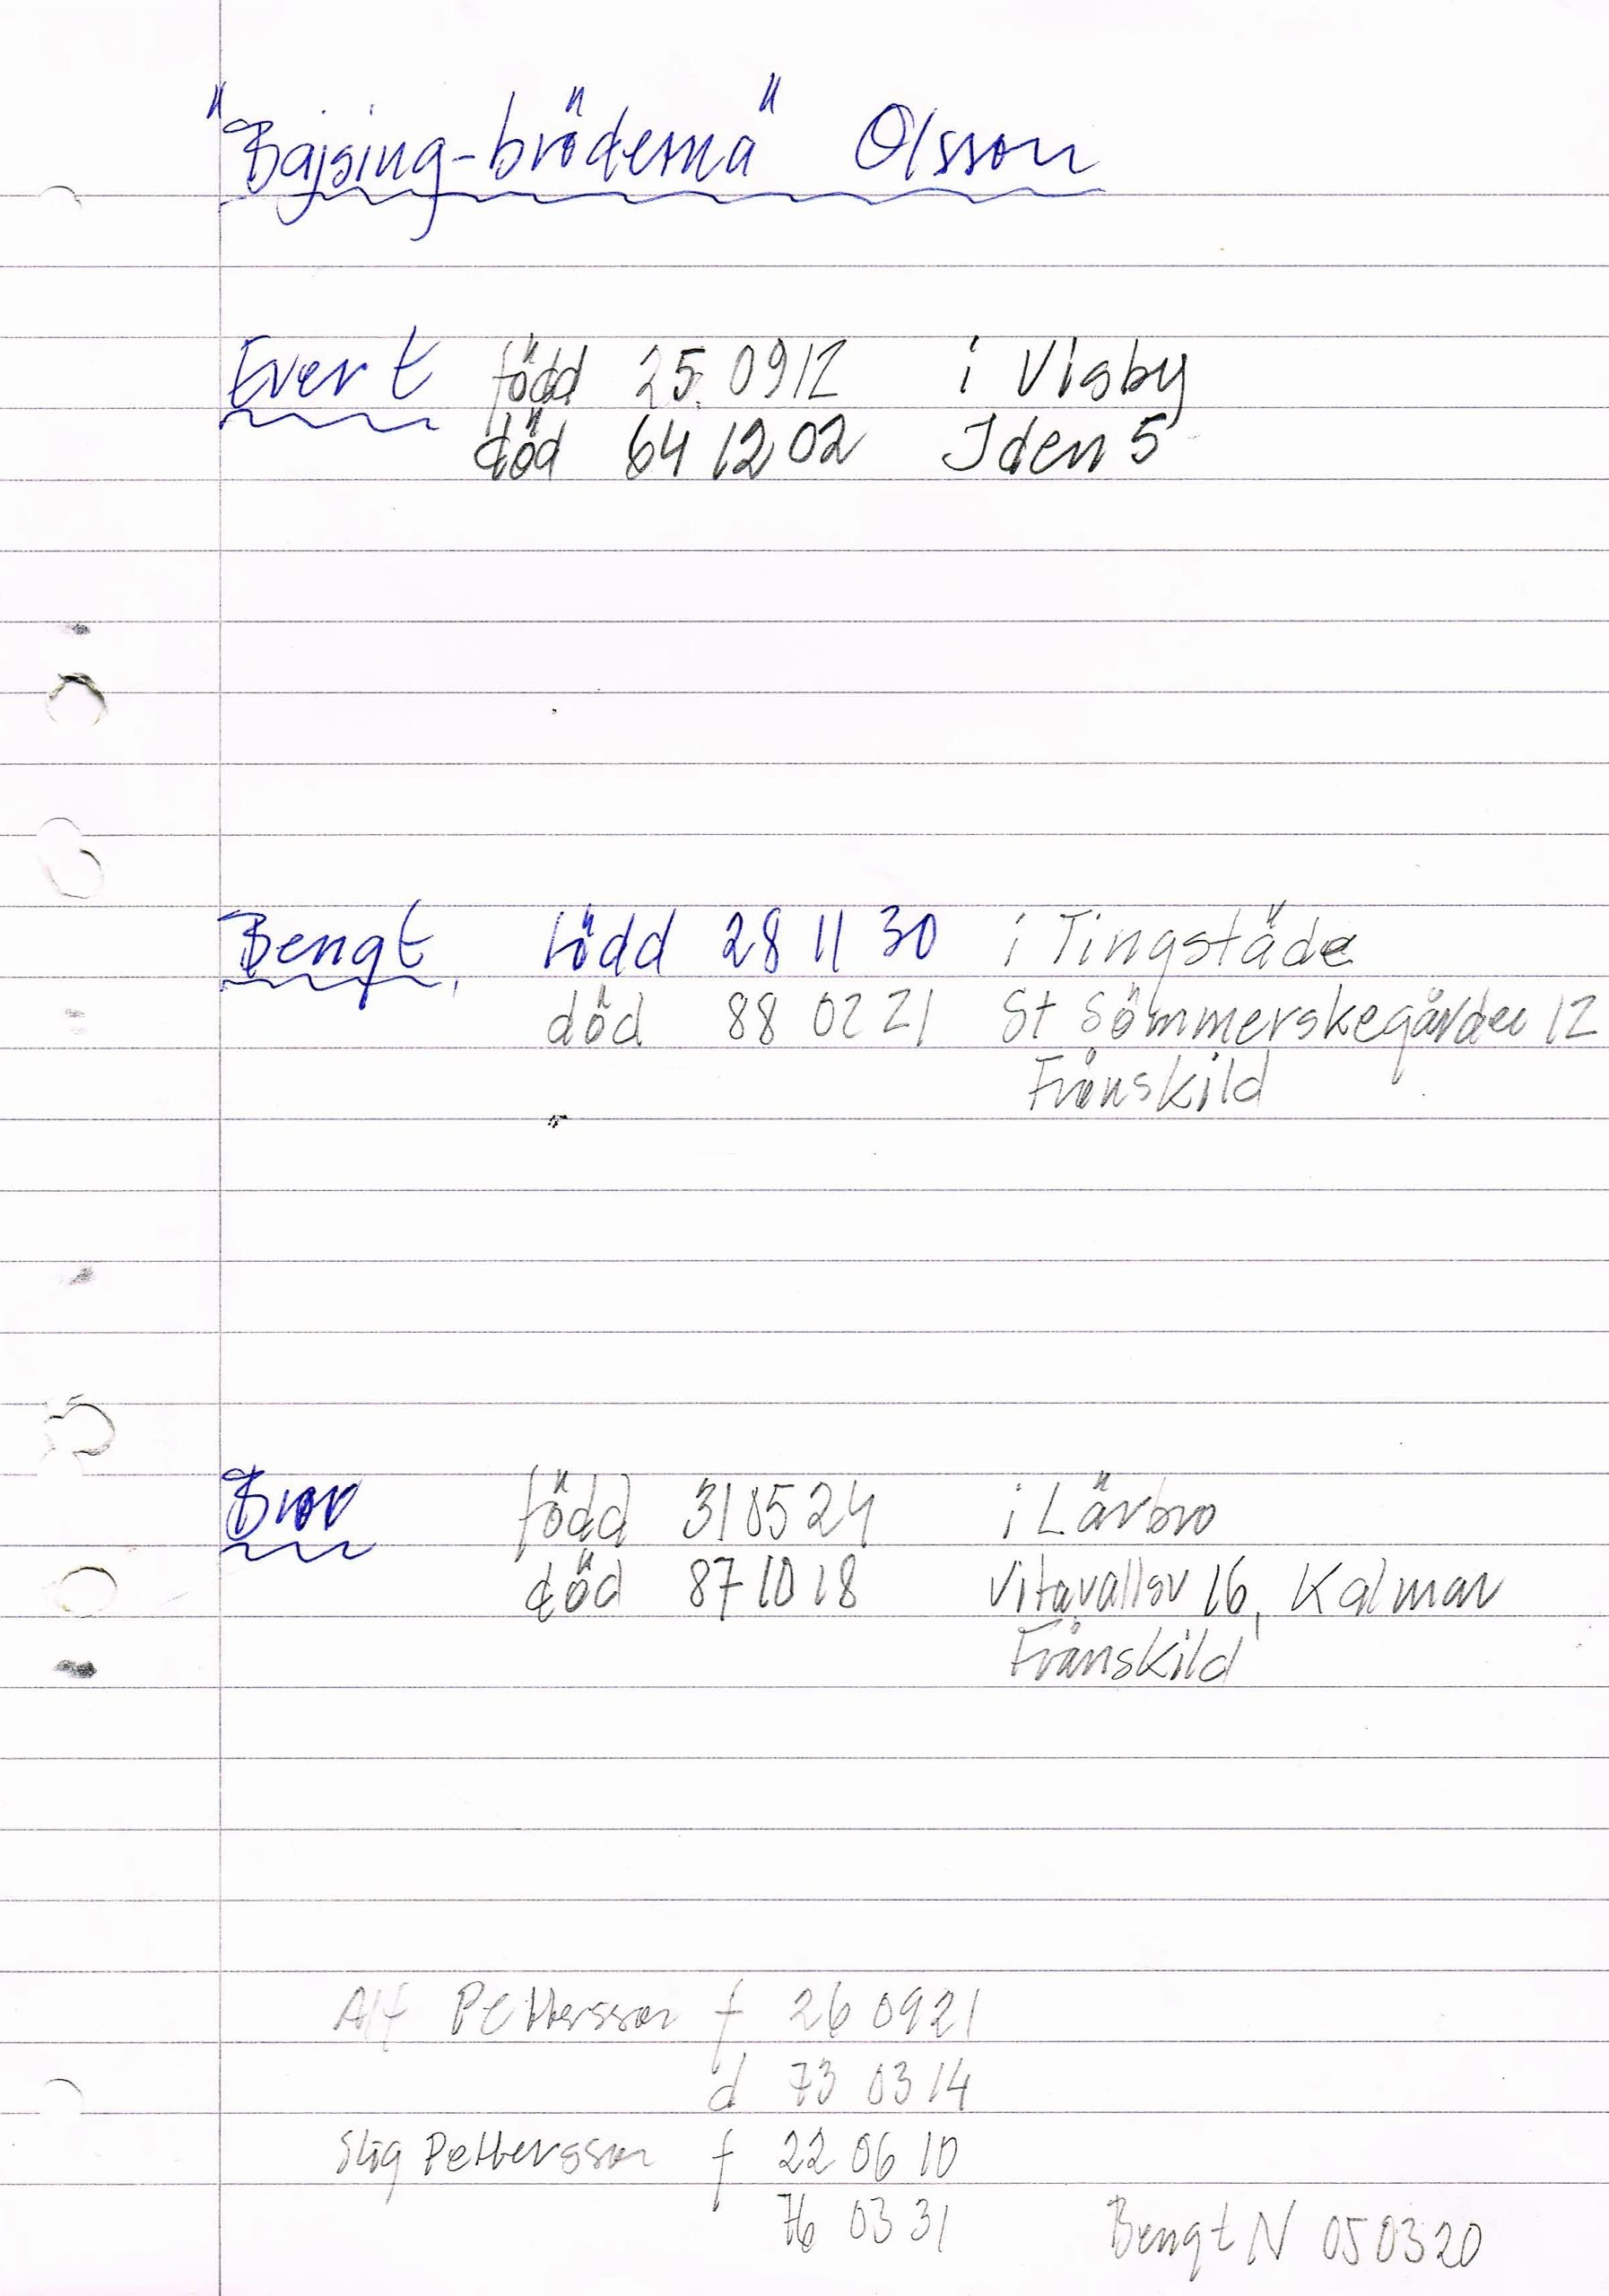 "Bajsing-bröderna" Olsson
Evert född 25 0912 i Visby
död 64 12 02 Iden 5
Bengt född 28 11 30 i Tingstäde
död 88 02 21 St Sömmerskegården 12
Frånskild
Bror född 31 05 24 i Lärbro
död 87 10 18 Vitavallsv 16, Kalmar
Frånskild
Alf Pettersson f 26 09 21
d 73 03 14
Stig Pettersson f 22 06 10
76 03 31
Bengt N 050320